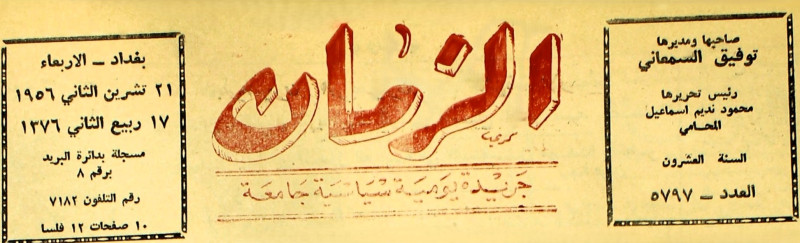 صاحبها ومديرها
توفيق السمعاني
رئيس تحريرها
محمود نديم اسماعيل
المحامي
السنة العشرون
العدد – ٥٧٩٧
الزمان
جريدة يومية سياسية جامعة
بغداد – الاربعاء
٢١ تشرين الثاني ١٩٥٦
١٧ ربيع الثاني ١٣٧٦
مسجلة بدائرة البريد
برقم ٨
رقم التلفون ٧١٨٢
١٠ صفحات ١٢ فلسا